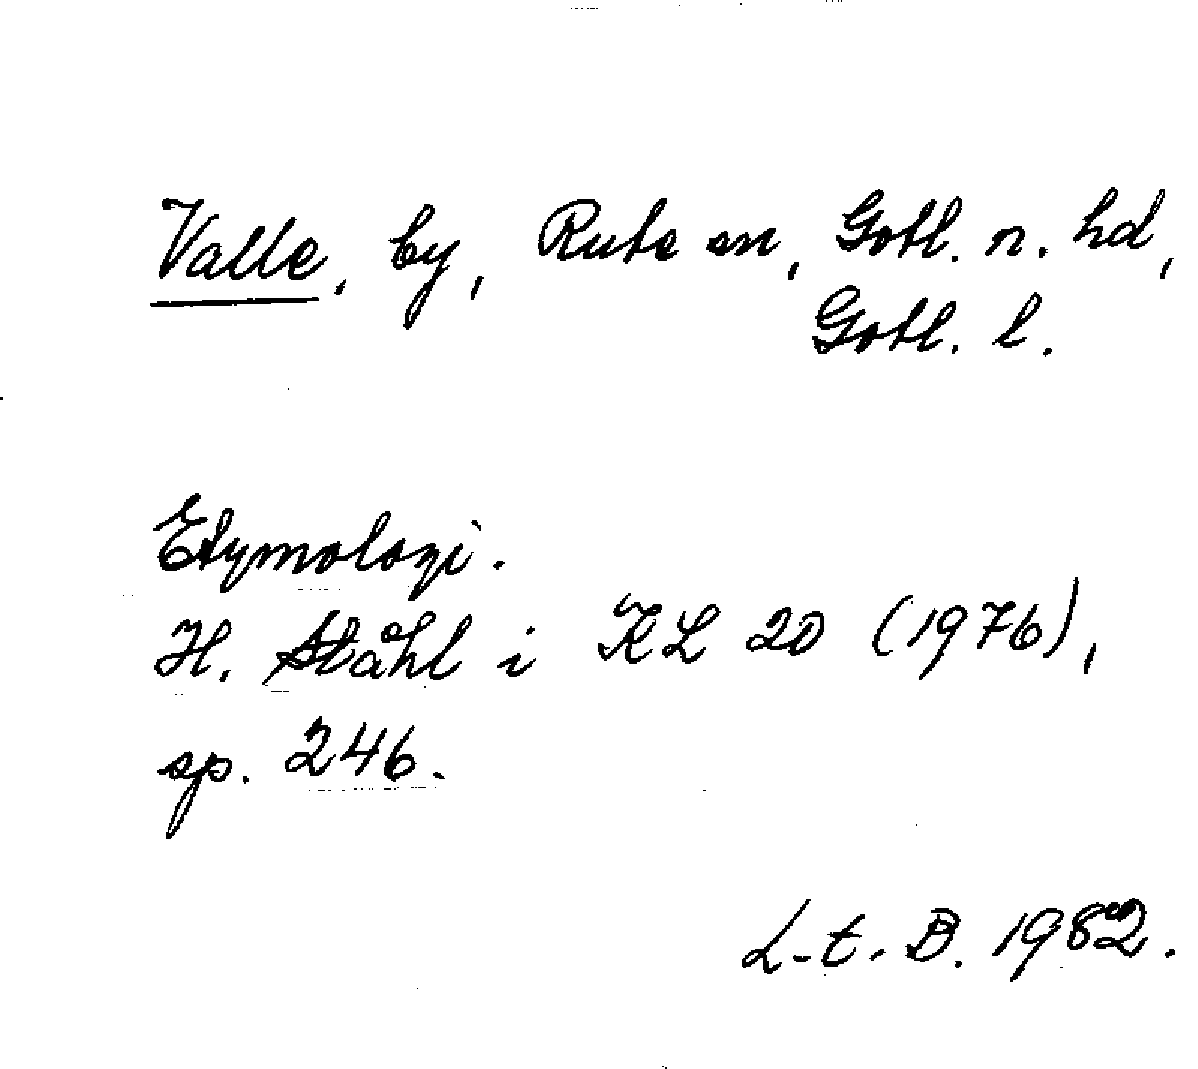 Valle, by, Rute sn, Gotl. n. hd,
Gotl. l.
Etymologi.
H. Ståhl i KL 20 (1976),
sp. 246.
L-t. B. 1982.